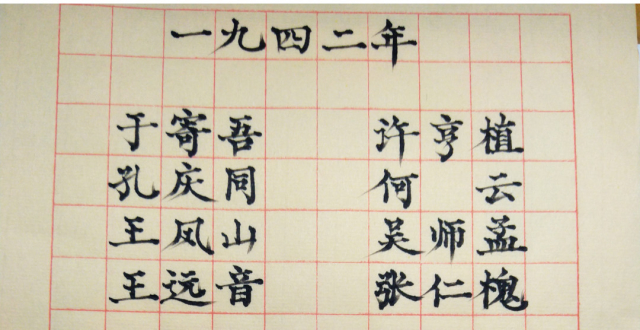 一九四二年
于寄吾 许亨植
孔庆同 何云
王凤山 吴师孟
王远音 张仁槐